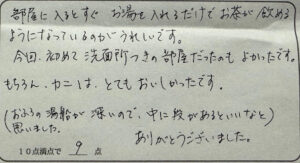 部屋に入るとすぐ お湯を入れるだけでお茶が飲める
ようになっているのがうれしいです。
今回、初めて洗面所つきの部屋だったのもよかったです。
もちろん、カニは、とてもおいしかったです。
(おふろの湯船が深いので、中に段があるといいなと
思いました。)
ありがとうございました。
10点満点で 9 点